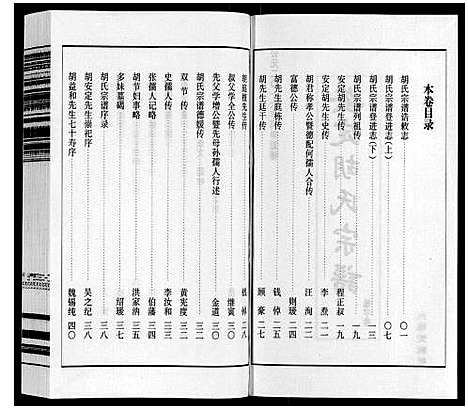 本卷目录
胡氏宗谱诰敕志 〇一
胡氏宗谱登进志(上) 〇七
胡氏宗谱登进志(下) 一三
胡氏宗谱列祖传 一九
安定胡先生传 程正叔 一九
安定胡先生史传 李焘 二一
富德公传 则瑗 二二
胡君称孝公暨德配何孺人合传 汪洵 二二
胡先生范栋传 钱倬 二五
胡先生廷干传 顾豪 二七
叔父学全公传 继寅
先父学增公暨先母孙孺人行述 金道 三〇
胡氏宗谱德媛传
双节传 黄宪度 三二
史孺人传 李汝和 三二
张孺人记略 伯藩 三四
胡节妇事略 洪家汭 三五
多妹墓碣 绍瑗 三七
胡氏宗谱序录 三八
胡安定先生崇祀序 吴之纪 三八
胡益和先生七十寿序 魏锡纯 四〇
胡氏宗譜